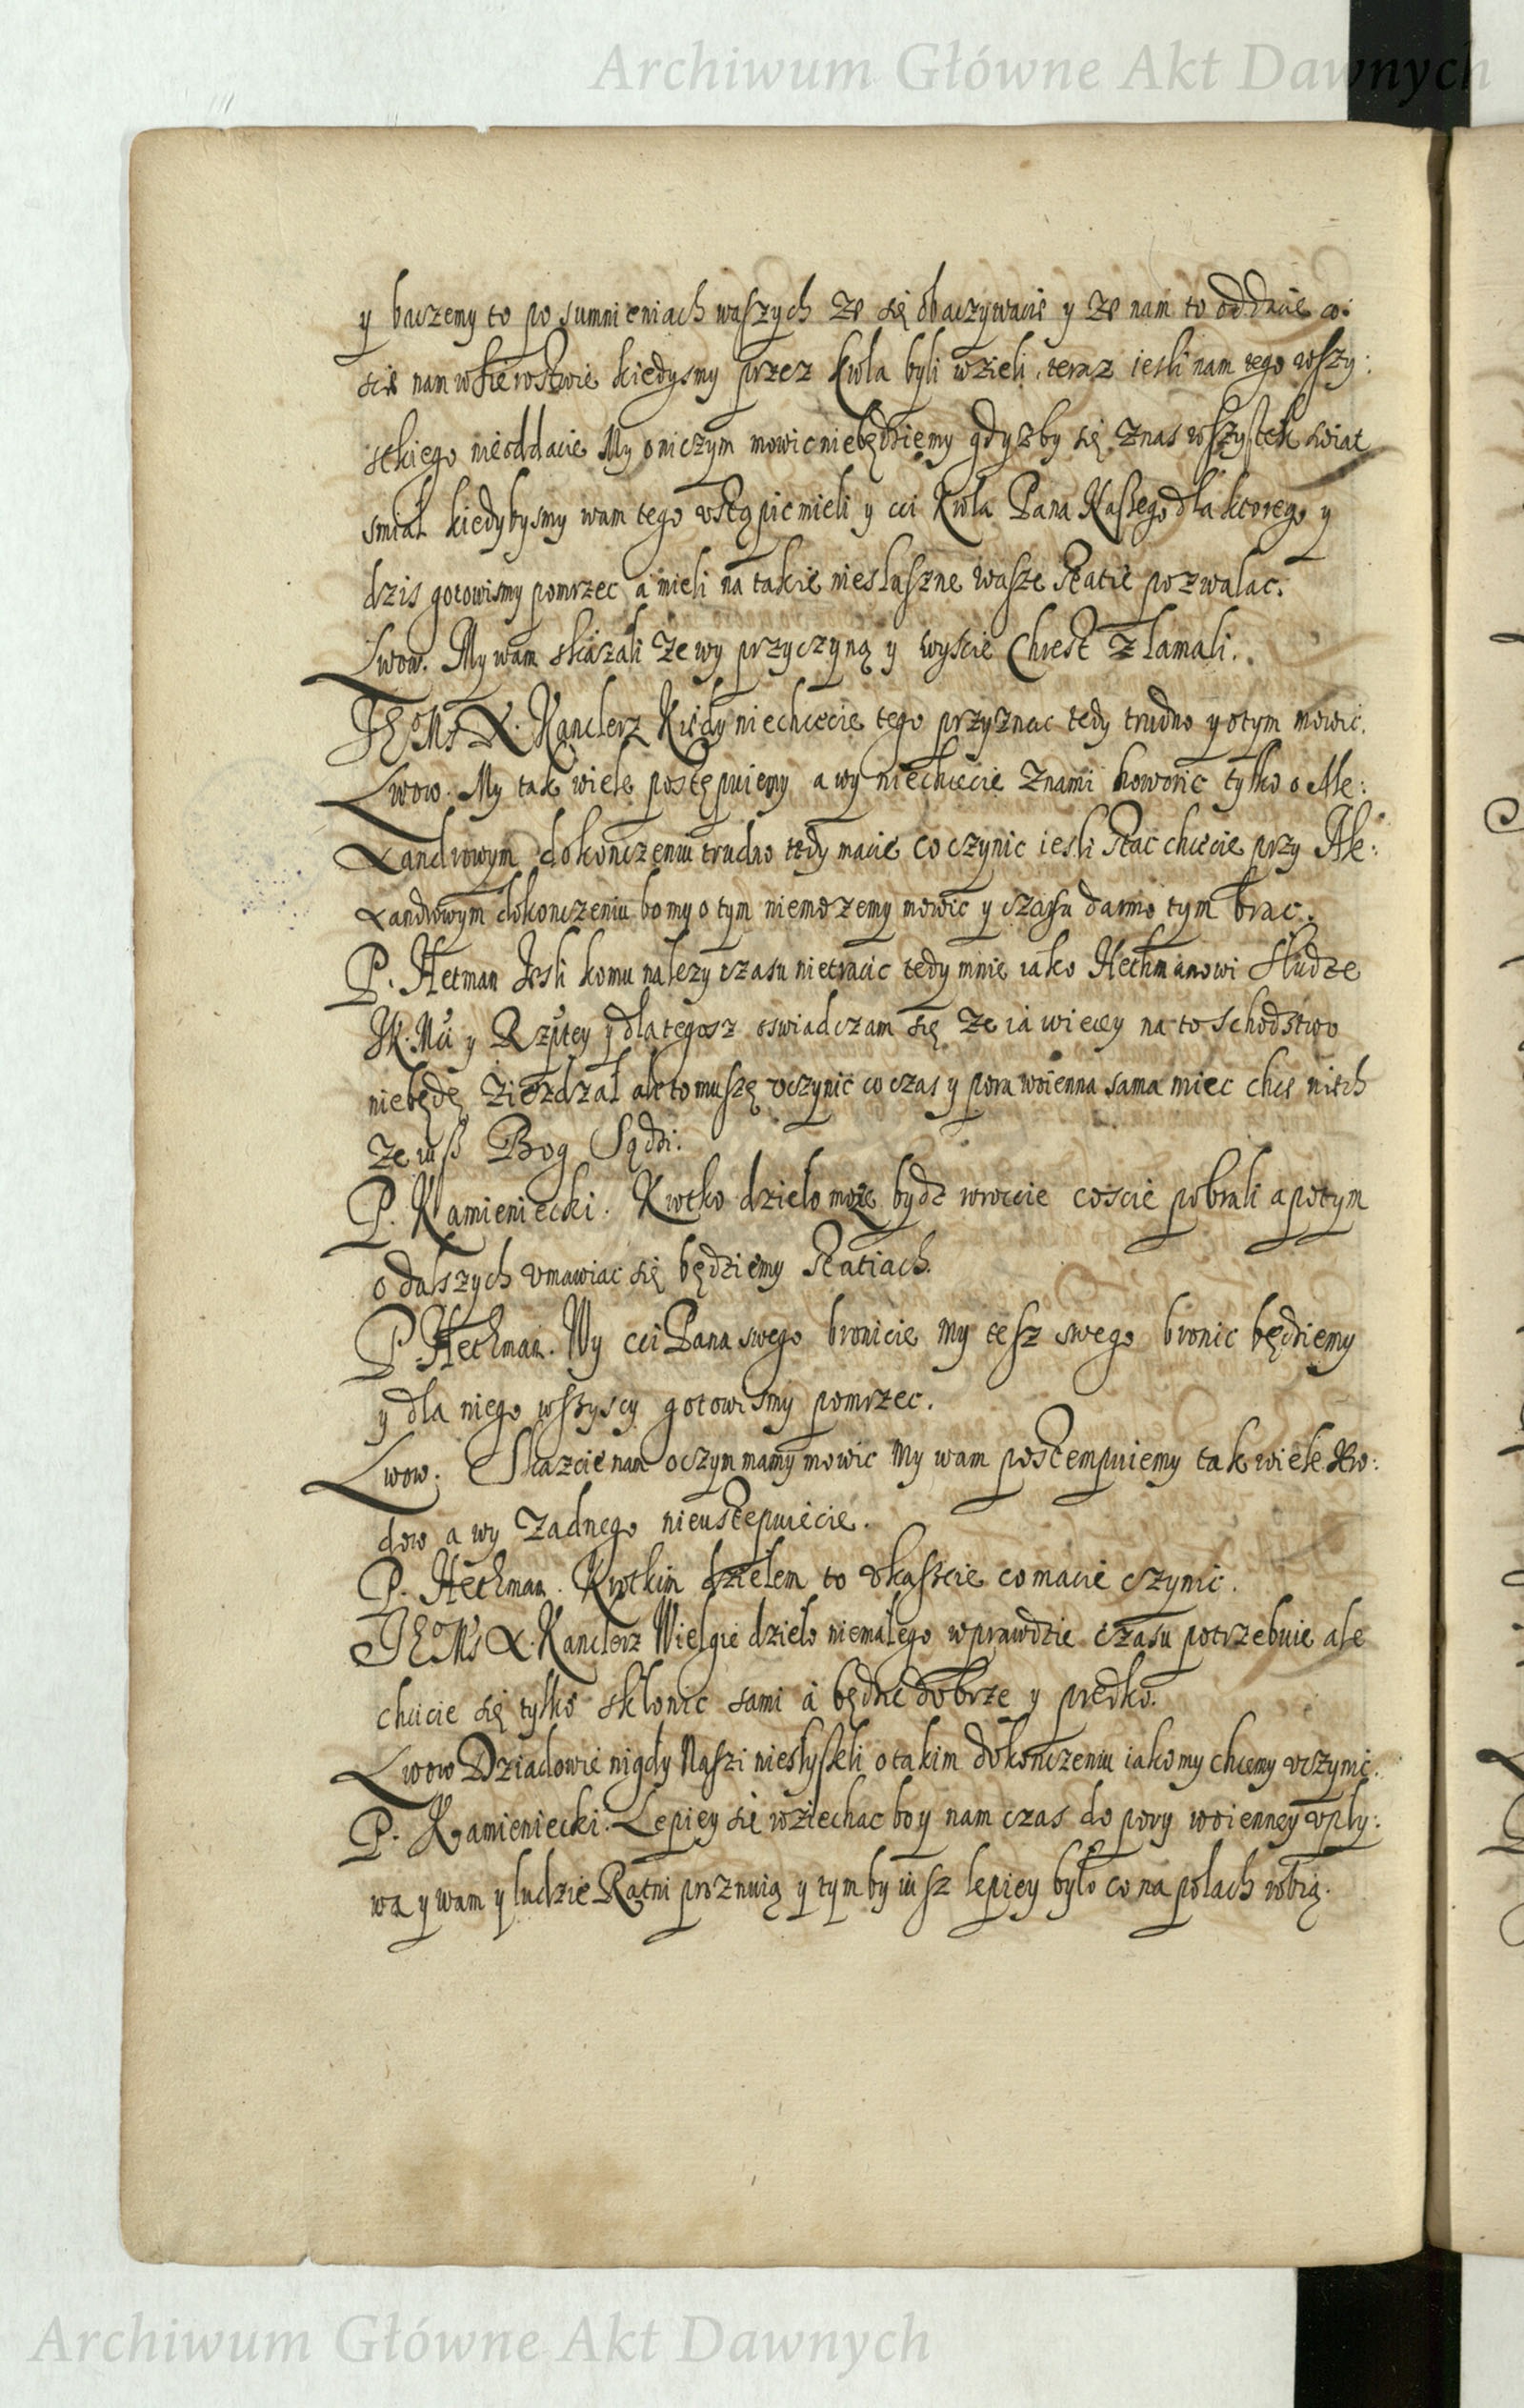 Archiwum Główne Akt Dawnych
y baczemy to po sumnieniach waszych że się obaczywacie y że nam to oddacie co:
scie nam w sierostwie kiedysmy przez Krola byli wzieli, teraz iesli nam tego wszy:
stkiego nieoddacie My oniczym mowic niebędziemy gdyzby się znas wszystek swiat
smiał kiedybysmy wam tego vstąpic mieli y cci Krola Pana Naszego dla ktorego y
dzis gotowismy pomrzec a mieli na takie niesłuszne wasze Statie pozwalac.
Lwow. My wam skazali że wy przyczyną y wyscie Chrest złamali.
JEoMs X. Kanclerz Kiedy niechcecie tego przyznac tedy trudno y otym mowic.
Lwow. My tak wiele postępuiemy a wy niechcecie znami howoric tylko o Ale:
xandrowym dokonczeniu trudno tedy macie co czynic iesli stac chcecie przy Ale:
xandrowym dokonczeniu bo my o tym niemozemy mowic y czasu darmo tym brac.
P. Hetman Jesli komu nalezy czasu nietracic tedy mnie iako Hethmanowi słudze
JK. Mci y Rzptey y dlategosz oswiadczam się ze ia wiecey na to schodstwo
niebędę ziezdzał ale to muszę vczynic co czas y pora woienna sama miec chce niech
ze iusz Bog Sądzi.
P. Kamieniecki. Krotko dzieło może bydz wroccie coscie pobrali a potym
o dalszych vmawiac się będziemy Statiach.
P. Hethman. Wy cci Pana swego bronicie my tesz swego bronic będziemy
y dla niego wszyscy gotowismy pomrzec.
Lwow. Skazcie nam oczym mamy mowic My wam postempuiemy tak wiele Hro:
dow a wy zadnego nieustepuiecie.
P. Hethman. Krotkim dziełem to vkaszcie co macie czynic.
JEoMs X. Kanclerz Wielgie dzieło niemałego wprawdzie czasu potrzebuie ale
chcicie się tylko skłonic sami a będzie dobrze y prędko.
Lwow Dziadowie nigdy Naszi niesłyszeli o takim dokonczeniu iako my chcemy vczynic.
P. Kamieniecki. Lepiey się roziechac bo y nam czas do pory woienney vpły:
wa y wam y ludzie Ratni proznuią y tym by iusz lepiey było co na polach robią.
Archiwum Główne Akt Dawnych